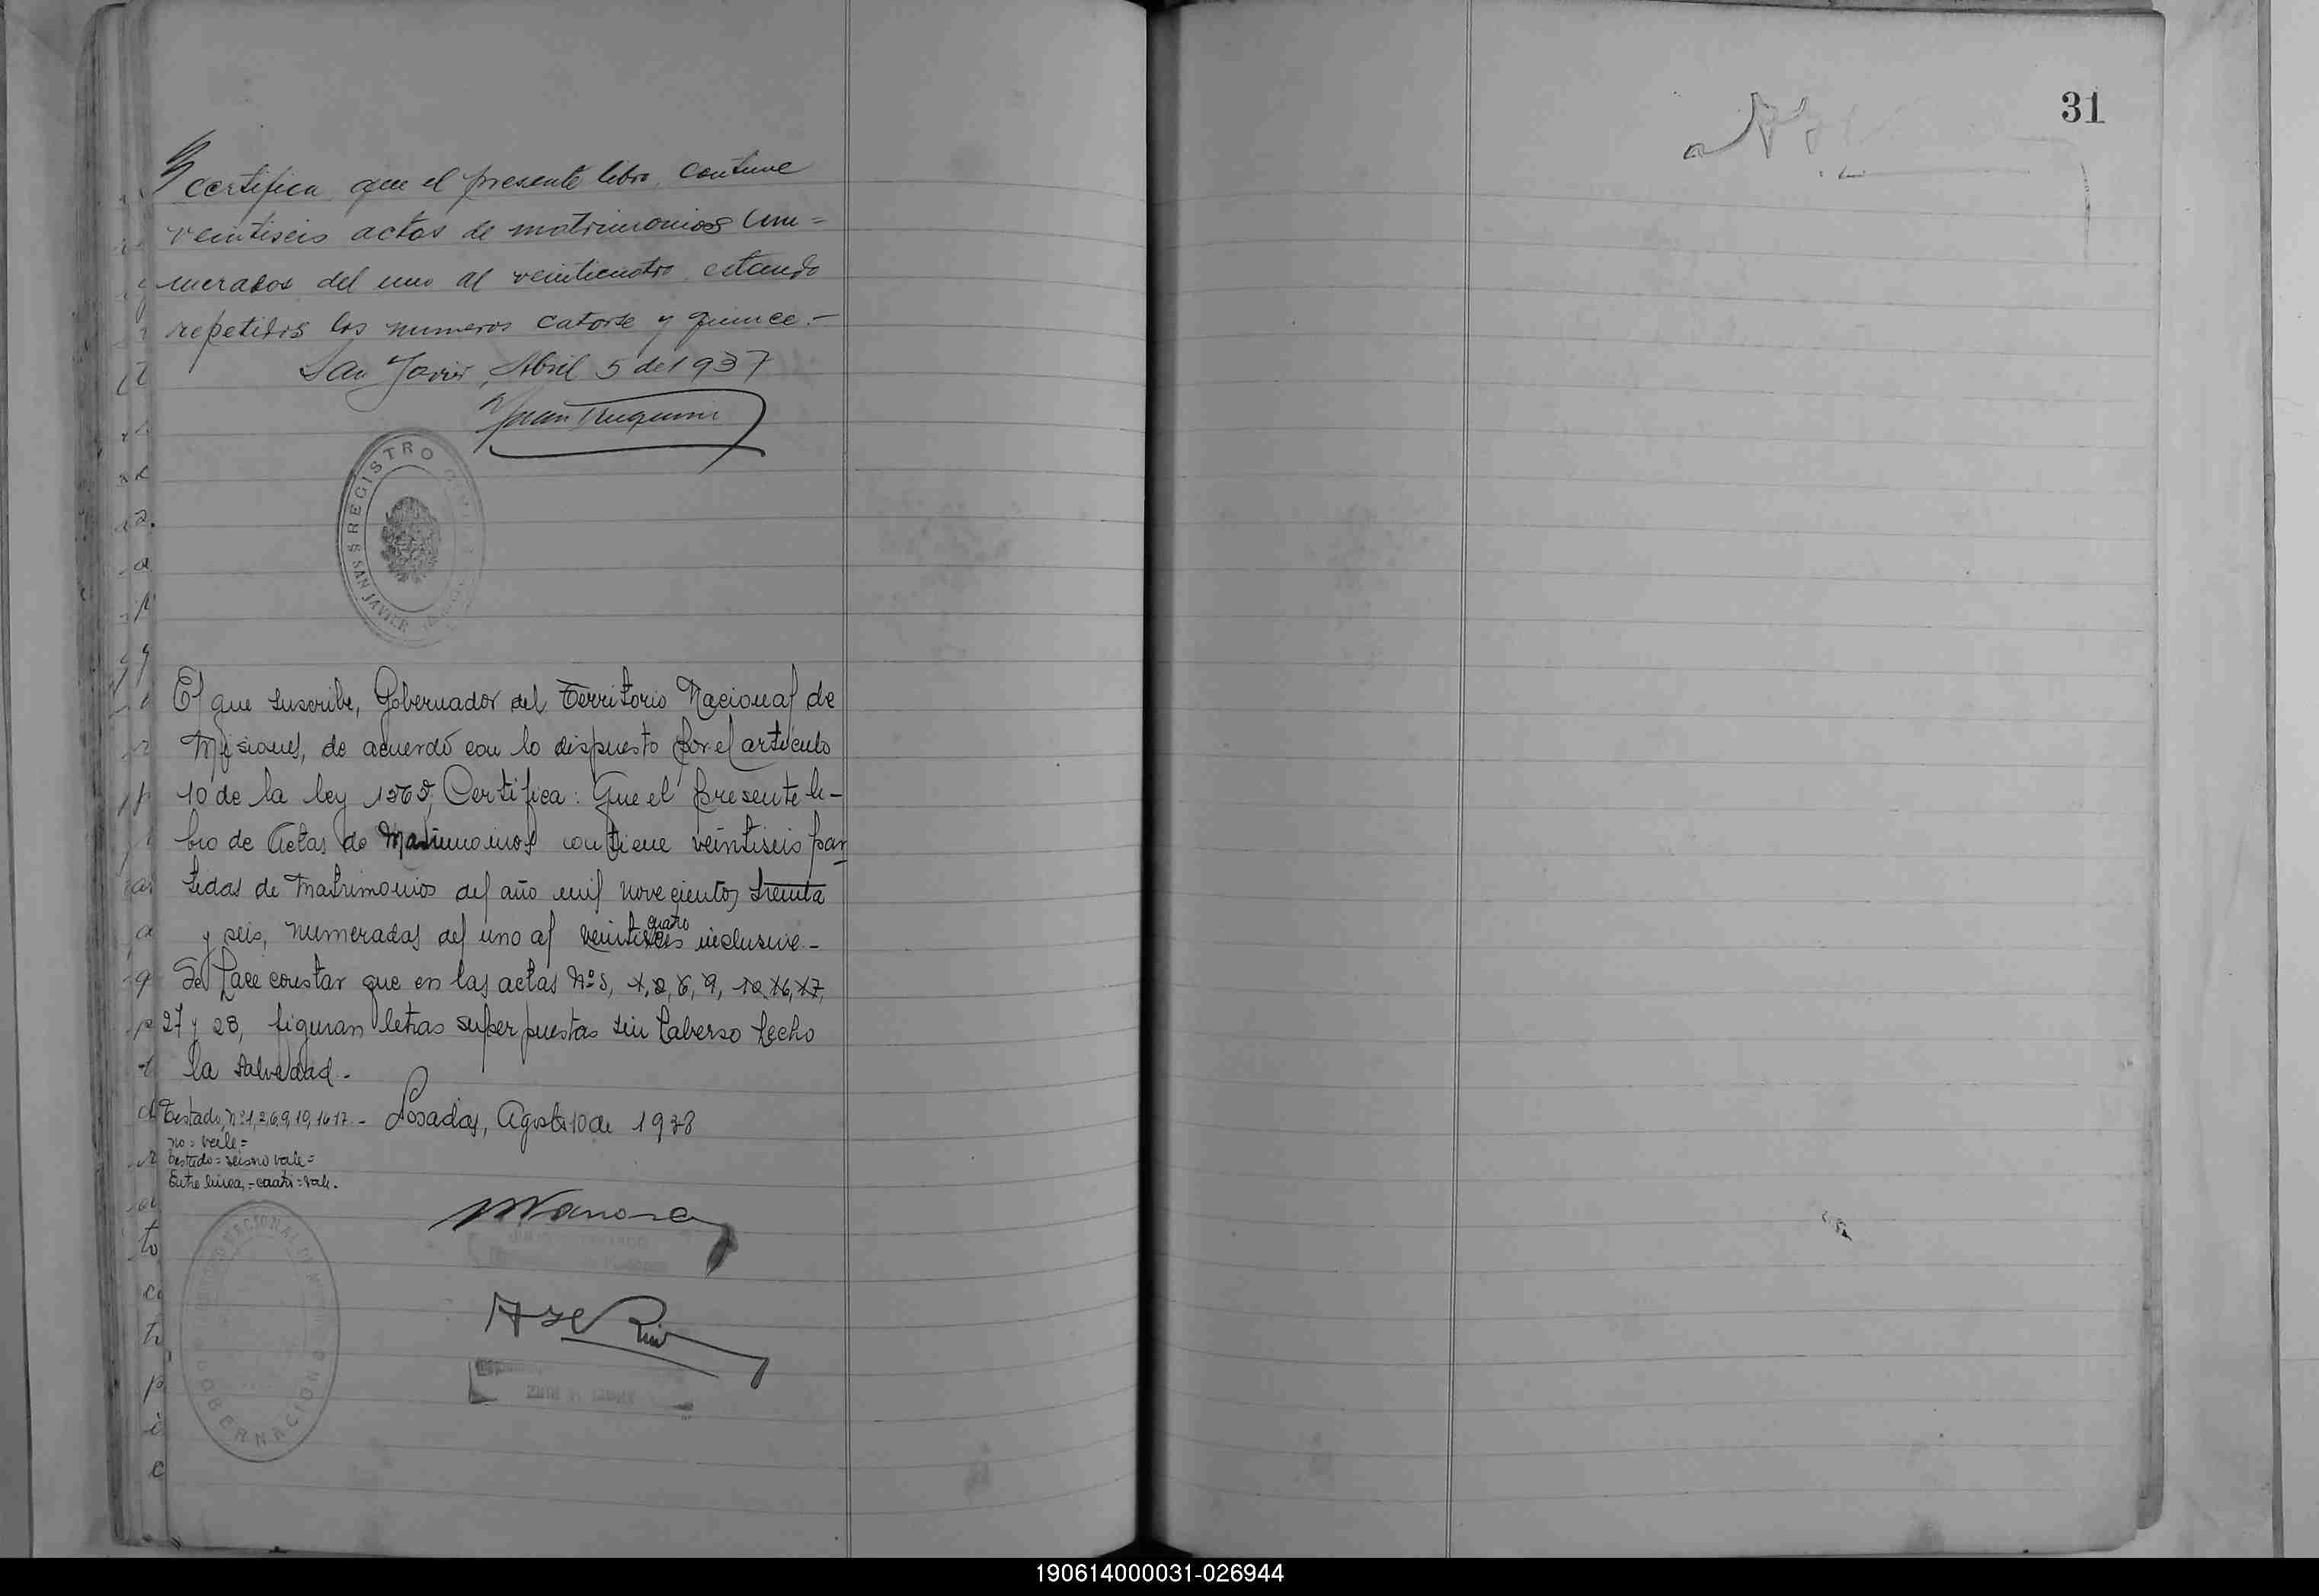 certifica que el presente libro, contiene
veintiseis actas de matrimonios enu=
merados del uno al veinticuatro, estando
repetidos los numeros catorse y quince.-
San Javier, Abril 5 de 1937
Juan
REGISTRO
SAN JAVIER
El que suscribe, Gobernador del Territorio Nacional de
Misiones, de acuerdo con lo dispuesto por el articulo
10 de la ley 1565, Certifica: Que el presente li-
bro de Actas de Matrimonios contiene veintiseis par
tidas de Matrimonios del año mil novecientos treinta
y seis, numeradas del uno al veintiseis cuatro inclusive.-
Se hace constar que en las actas Nos, 1, 2, 6, 9, 10, 16, 17,
27 y 28, figuran letras superpuestas sin haberse hecho
la salvedad.-
Testado, Nº 1, 2, 6, 9, 10, 16 17.- Posadas, Agosto 10 de 1938
no = vale =
testado = seis no vale =
Entre linea, = cuatro = vale.
GOBERNACION
31
190614000031-026944